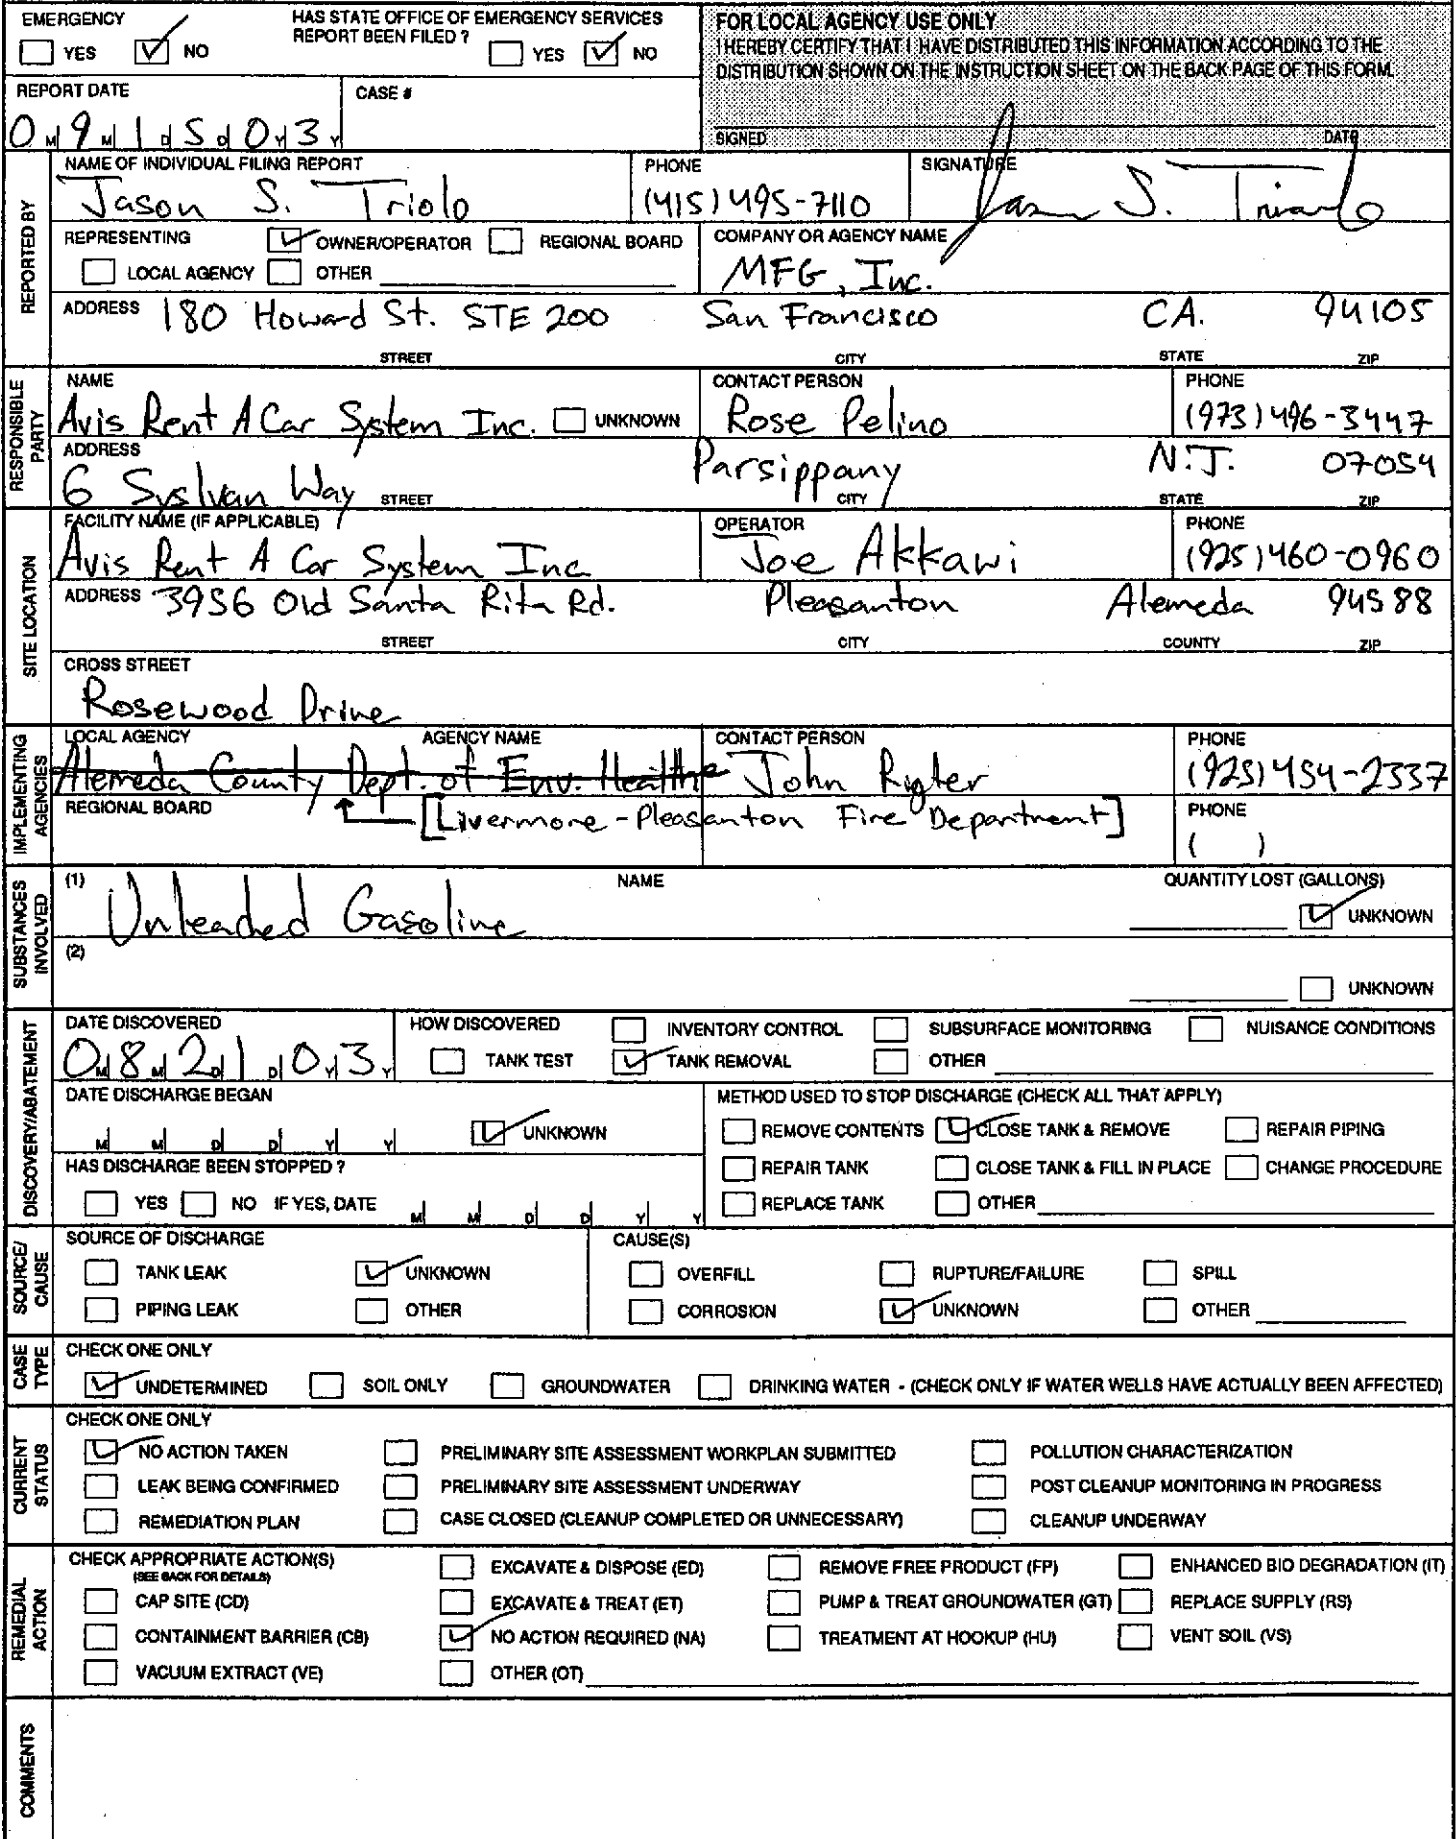 EMERGENCY
YES NO
HAS STATE OFFICE OF EMERGENCY SERVICES
REPORT BEEN FILED ?
YES NO
FOR LOCAL AGENCY USE ONLY
I HEREBY CERTIFY THAT I HAVE DISTRIBUTED THIS INFORMATION ACCORDING TO THE
DISTRIBUTION SHOWN ON THE INSTRUCTION SHEET ON THE BACK PAGE OF THIS FORM.
SIGNED DATE
REPORT DATE
0 M 9 M 1 D 5 D 0 Y 3 Y
CASE #
REPORTED BY
NAME OF INDIVIDUAL FILING REPORT
Jason S. Triolo
PHONE
(415) 495-7110
SIGNATURE
Jason S. Triolo
REPRESENTING OWNER/OPERATOR REGIONAL BOARD
LOCAL AGENCY OTHER
COMPANY OR AGENCY NAME
MFG, Inc.
ADDRESS 180 Howard St. STE 200 San Francisco CA. 94105
STREET CITY STATE ZIP
RESPONSIBLE
PARTY
NAME
Avis Rent A Car System Inc. UNKNOWN
CONTACT PERSON
Rose Pelino
PHONE
(973) 496-3447
ADDRESS
6 Syslvan Way Parsippany N.J. 07054
STREET CITY STATE ZIP
SITE LOCATION
FACILITY NAME (IF APPLICABLE)
Avis Rent A Car System Inc
OPERATOR
Joe Akkawi
PHONE
(925) 460-0960
ADDRESS 3956 Old Santa Rita Rd. Pleasanton Alemeda 94588
STREET CITY COUNTY ZIP
CROSS STREET
Rosewood Drive
IMPLEMENTING
AGENCIES
LOCAL AGENCY AGENCY NAME
Alemeda County Dept. of Env. Healthe
CONTACT PERSON
John Rigter
PHONE
(925) 454-2337
REGIONAL BOARD
[Livermore-Pleasanton Fire Department]
PHONE
( )
SUBSTANCES
INVOLVED
(1) NAME QUANTITY LOST (GALLONS)
Unleaded Gasoline UNKNOWN
(2)
UNKNOWN
DISCOVERY/ABATEMENT
DATE DISCOVERED
0 M 8 M 2 D 1 D 0 Y 3 Y
HOW DISCOVERED INVENTORY CONTROL SUBSURFACE MONITORING NUISANCE CONDITIONS
TANK TEST TANK REMOVAL OTHER
DATE DISCHARGE BEGAN
M M D D Y Y UNKNOWN
METHOD USED TO STOP DISCHARGE (CHECK ALL THAT APPLY)
REMOVE CONTENTS CLOSE TANK & REMOVE REPAIR PIPING
REPAIR TANK CLOSE TANK & FILL IN PLACE CHANGE PROCEDURE
REPLACE TANK OTHER
HAS DISCHARGE BEEN STOPPED ?
YES NO IF YES, DATE M M D D Y Y
SOURCE/
CAUSE
SOURCE OF DISCHARGE
TANK LEAK UNKNOWN
PIPING LEAK OTHER
CAUSE(S)
OVERFILL RUPTURE/FAILURE SPILL
CORROSION UNKNOWN OTHER
CASE
TYPE
CHECK ONE ONLY
UNDETERMINED SOIL ONLY GROUNDWATER DRINKING WATER - (CHECK ONLY IF WATER WELLS HAVE ACTUALLY BEEN AFFECTED)
CURRENT
STATUS
CHECK ONE ONLY
NO ACTION TAKEN PRELIMINARY SITE ASSESSMENT WORKPLAN SUBMITTED POLLUTION CHARACTERIZATION
LEAK BEING CONFIRMED PRELIMINARY SITE ASSESSMENT UNDERWAY POST CLEANUP MONITORING IN PROGRESS
REMEDIATION PLAN CASE CLOSED (CLEANUP COMPLETED OR UNNECESSARY) CLEANUP UNDERWAY
REMEDIAL
ACTION
CHECK APPROPRIATE ACTION(S)
(SEE BACK FOR DETAILS)
EXCAVATE & DISPOSE (ED) REMOVE FREE PRODUCT (FP) ENHANCED BIO DEGRADATION (IT)
CAP SITE (CD) EXCAVATE & TREAT (ET) PUMP & TREAT GROUNDWATER (GT) REPLACE SUPPLY (RS)
CONTAINMENT BARRIER (CB) NO ACTION REQUIRED (NA) TREATMENT AT HOOKUP (HU) VENT SOIL (VS)
VACUUM EXTRACT (VE) OTHER (OT)
COMMENTS